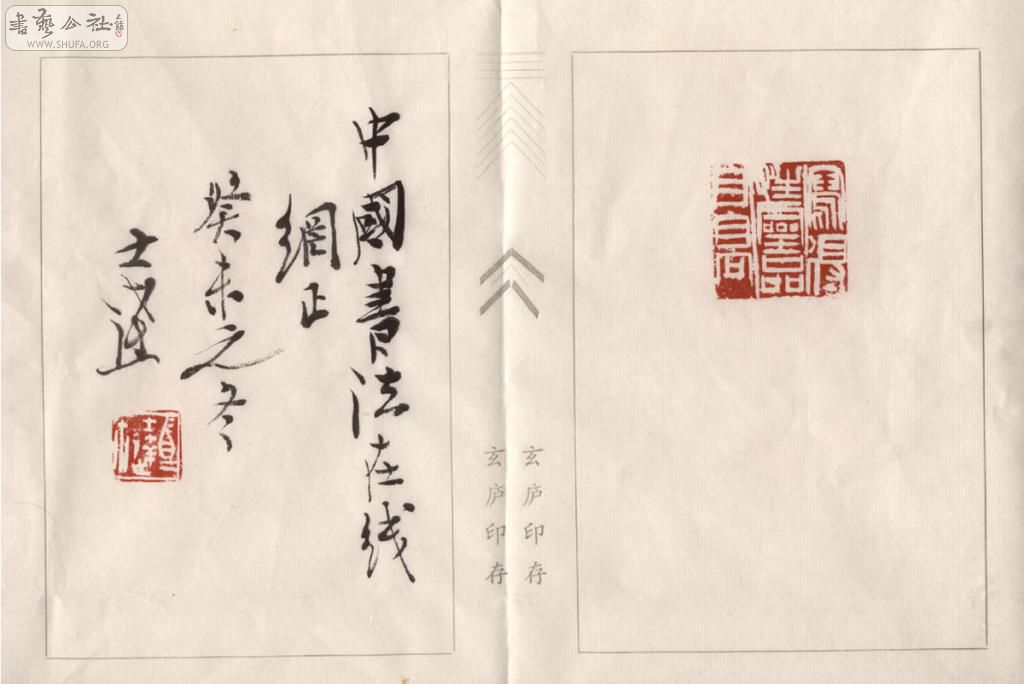 書藝公社
WWW.SHUFA.ORG
中國書法在线
網正
癸未之冬
士达
玄庐印存
玄庐印存